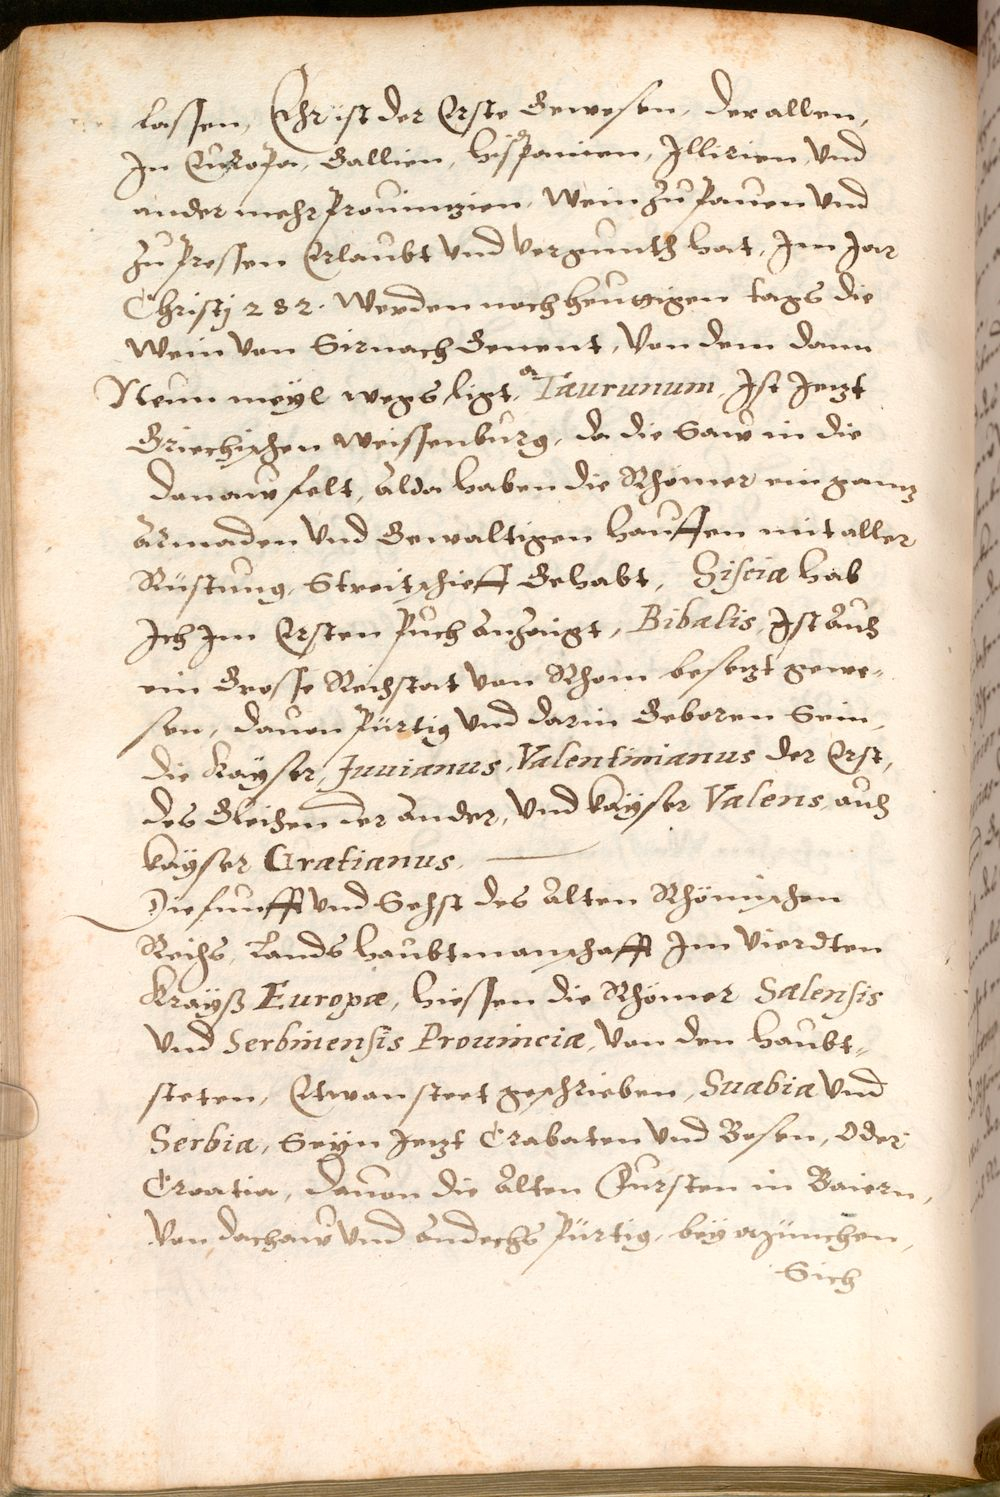 lassen, Ehr ist der Erste Gewesen, der allen,
In Europa, Gallien, Hispanien, Illirien, Und
ander mehr Prouintzien, Wein zu Pauen Und
zu Pressen Erlaubt Und Vergunth hat, Im Jar
Christj 282. Werden noch heuttigen tags die
Wein Von Sirnach Genent, Von dem dann
Neun meyl wegs ligt, Taurunum, Ist Jetzt
Griechischen Weissenburg, da die Saw in die
Danaw felt, Alda haben die Rhömer ein gantz
Armaden Und Gewaltigen hauffen mit aller
Rüstung, Streitschieff Gehabt, Siscia hab
Ich Im Ersten Puch Anzaigt, Bibalis, Ist Auch
ein Grosse Reichstat Von Rhom besetzt gewe-
sen, dauon Pürtig Und darin Geboren Sein,
die Kayser, Juuianus, Valentinianus der Erst,
des Gleichen der Ander, Und Kayser Valens, auch
Kayser Gratianus.
Die funfft Und Sechst des Alten Rhömischen
Reichs, Lands haubtmanschafft Im Vierdten
Krayß Europæ, hiessen die Rhömer Salensis
Und Serbinensis Prouincia, Von den haubt-
steten, Etwan steet geschrieben, Suabia Und
Serbia, Seyn Jetzt Crabaten Und Bosen, Oder
Croatia, dauon die Alten Fursten in Baiern,
Von dachaw Und Andechs Pürtig, bey München,
Sich